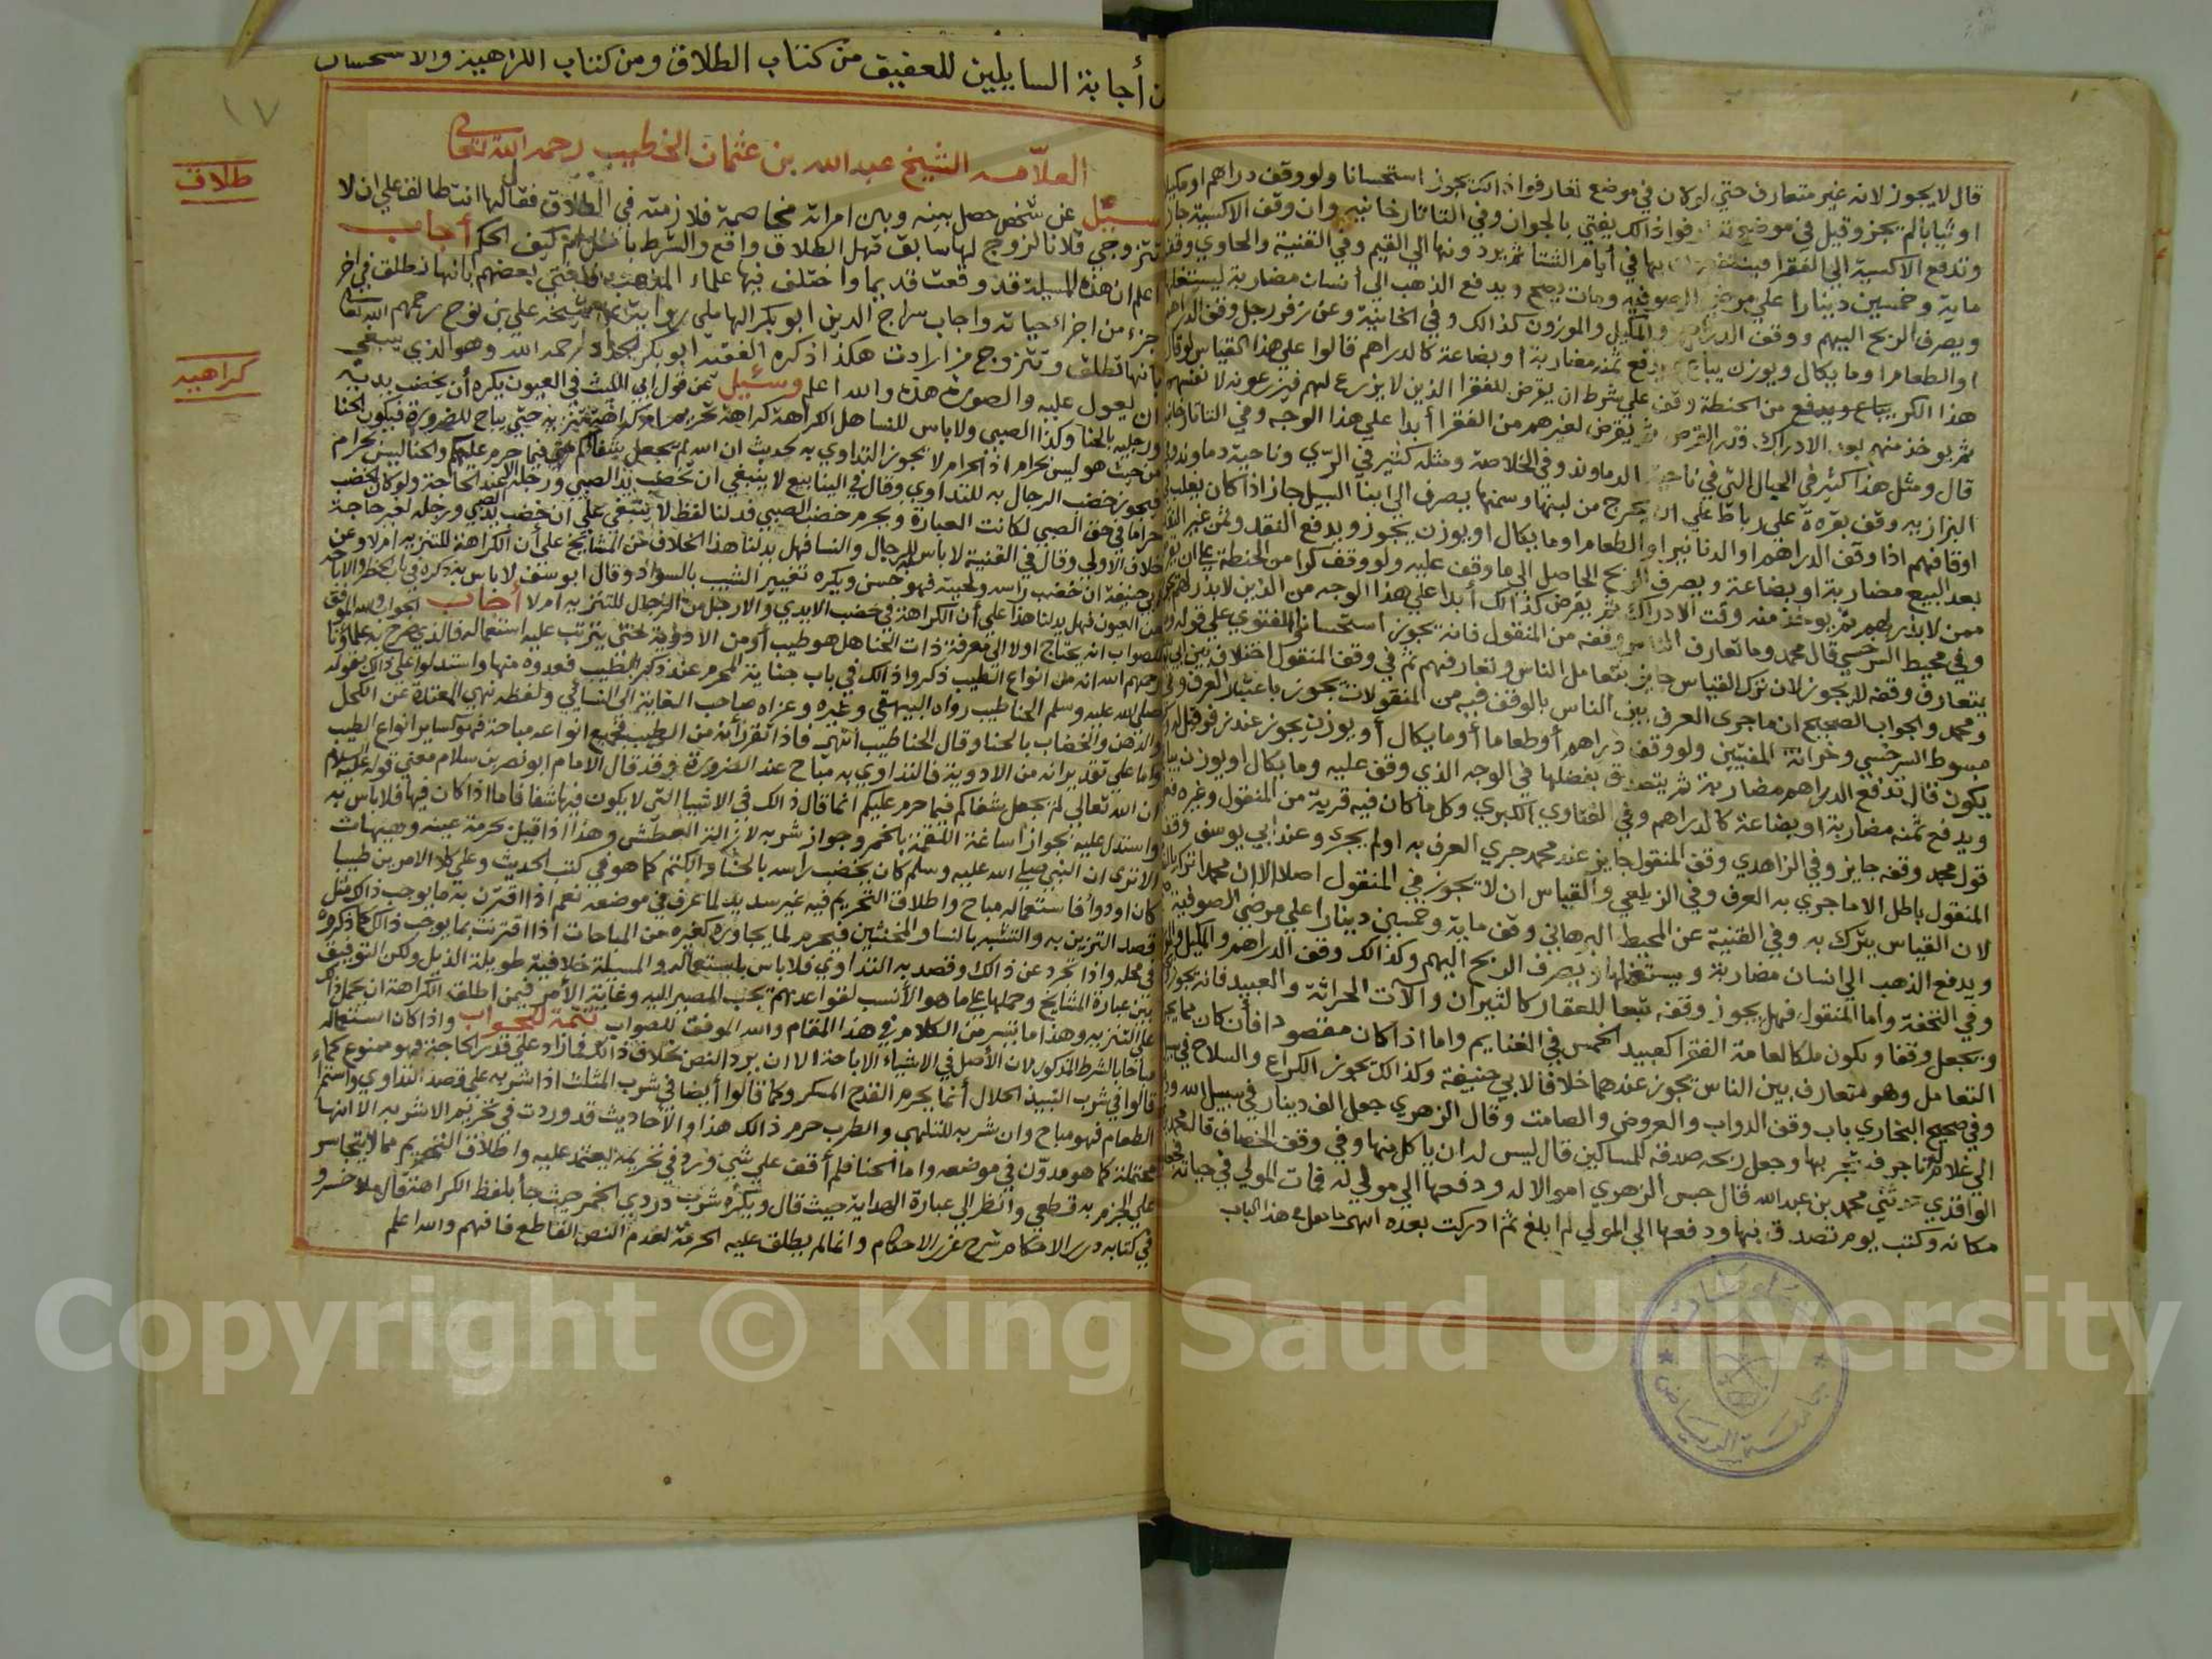 قال لا يجوز لانه غير متعارف حتي لو كان في موضع تعارفوا ذالك يجوز استحسانا ولو وقف دراهم او مكيلا
او ثيابا لم يجز وقيل في موضع تعارفوا ذالك يفتي بالجواز وفي التاتارخانيه وان وقف الاكسية جاز
وتدفع الاكسية الي الفقرا فينتفعون بها في أيام الشتا ثم يردونها الي القيم وفي القنية والحاوي وقف
ماية وخمسين دينارا علي مرضي الصوفيه ومات يصح ويدفع الذهب الي أنسان مضاربة ليستغلها
ويصرف الربح اليهم ووقف الدراهم والمكيل والموزون كذالك وفي الخانية وعن زفر رجل وقف الدراهم
او الطعام او ما يكال ويوزن يباع ويدفع ثمنه مضاربة او بضاعة كالدراهم قالوا علي هذا القياس لو قال
هذا الكر يباع ويدفع من الحنطة وقف علي شرط ان يقرض للفقرا الذين لا يزرع لهم فيزرعونه لانفسهم
ثم يوخذ منهم بعد الادراك قدر القرض ثم يقرض لغيرهم من الفقرا أبدا علي هذا الوجه وفي التاتارخانيه
قال ومثل هذا كثير في الجبال التي في ناحية الدماوند وفي الخلاصة ومثله كثير في الرّي وناحية دماوند
البزازيه وقف بقرة علي رباط علي ان يخرج من لبنها وسمنها يصرف الي ابنا السبيل جاز اذا كان
اوقافهم اذا وقف الدراهم او الدنانير او الطعام او ما يكال او يوزن يجوز ويدفع النقد وثمن غير النقد
بعد البيع مضاربة او بضاعة ويصرف الربح الحاصل الي ما وقف عليه ولو وقف كرا من الحنطة علي ان يقرض
ممن لا بذر لهم ثم يوخذ منه وقت الادراك ثم يقرض كذالك أبدا علي هذا الوجه من الذين لا بذر لهم
وفي محيط السرخسي قال محمد وما تعارف الناس وقفه من المنقول فانه يجوز استحسانا والفتوي علي قوله
يتعارف وقفه لا يجوز لان ترك القياس جايز بتعامل الناس وتعارفهم ثم في وقف المنقول اختلاف بين ابي
ومحمد والجواب الصحيح ان ما جري العرف بين الناس بالوقف فيه من المنقولات يجوز باعتبار العرف وفي
مبسوط السرخسي وخزانة المفتيين ولو وقف دراهم أو طعاما أو ما يكال أو يوزن يجوز عند زفر قيل
يكون قال تدفع الدراهم مضاربة ثم يتصدق بفضلها في الوجه الذي وقف عليه وما يكال او يوزن يباع
ويدفع ثمنه مضاربة او بضاعة كالدراهم وفي الفتاوي الكبري وكل ما كان فيه قربة من المنقول وغيره
قول محمد وقفه جايز وفي الزاهدي وقف المنقول جايز عند محمد جري العرف به او لم يجري وعند ابي يوسف وقف
المنقول باطل الا ما جري به العرف وفي الزيلعي والقياس ان لا يجوز في المنقول اصلا الا ان محمدا ترك
لان القياس يترك به وفي القنية عن المحيط البرهاني وقف ماية وخمسين دينارا علي مرضي الصوفية
ويدفع الذهب الي انسان مضاربة ويستغلها ويصرف الربح اليهم وكذالك وقف الدراهم والمكيل
وفي التحفة واما المنقول فهل يجوز وقفه تبعا للعقار كالثيران والآت الحراثة والعبيد فانه يجوز
ويجعل وقفا ويكون ملكا لعامة الفقرا كعبيد الخمس في الغنايم واما اذا كان مقصودا فأن كان
التعامل وهو متعارف بين الناس يجوز عندهما خلافا لابي حنيفة وكذالك يجوز الكراع والسلاح في
وفي صحيح البخاري باب وقف الدواب والعروض والصامت وقال الزهري جعل الف دينار في سبيل الله
الي غلام له تاجر يتجر بها وجعل ربحه صدقة للمساكين قال ليس له ان ياكل منها وفي وقف الخصاف قال
الواقدي حدثني محمد بن عبد الله قال حبس الزهري اموالا له ودفعها الي مولي له فمات المولي في حياته
مكانه وكتب يوم تصدق بها ودفعها الي المولي لم ابلغ ثم ادركت بعده انتهي ما نقل في هذا الباب
أجابة السايلين للعفيف من كتاب الطلاق ومن كتاب الكراهية والاستحسان
١٧
العلّامه الشيخ عبد الله بن عثمان الخطيب رحمه الله تعالي
طلاق
سئيل عن شخص حصل بينه وبين امراته مخاصمة فلازمته في الطلاق فقال لها انت طالق علي ان لا
تتزوجي فلانا لزوج لها سابق فهل الطلاق واقع والشرط باطل ام كيف الحكم أجاب
اعلم ان هذه المسيلة قد وقعت قديما واختلف فيها علماء المذهب فافتي بعضهم بانها تطلق في اخر
جزء من اجزاء حياته واجاب سراج الدين ابو بكر الهاملي شيخه علي بن نوح رحمهم الله تعالي
بانها تطلق وتتزوج من ارادت هكذا ذكره الفقيه ابو بكر الحداد رحمه الله وهو الذي ينبغي
كراهيه
ان يعول عليه والصورة هذه والله اعلم وسئيل عن قول ابي الليث في العيون يكره أن يخضب يديه
ورجليه بالحنا وكذا الصبي ولا باس للنسا هل الكراهة كراهة تحريم ام كراهة تنزيه حتي يباح للضرورة فيكون الحنا
من حيث هو ليس بحرام اذ الحرام لا يجوز التداوي به لحديث ان الله لم يجعل شفاكم فيما حرم عليكم والحنا ليس بحرام
فيجوز خضب الرجال به للتداوي وقال في الينابيع لا ينبغي ان تخضب يد الصبي ورجله الا عند الحاجة ولو كان الخضب
حراما في حق الصبي لكانت العبارة ويحرم خضب الصبي فدلنا لفظ لا ينبغي علي ان خضب يد الصبي ورجله لغير حاجة
خلاف الاولي وقال في القنية لا باس للرجال والنسا فهل يدلنا هذا الخلاف من المشايخ علي أن الكراهة للتنزيه ام لا وعن
ابي حنيفة ان خضب راسه ولحيته فهو حسن ويكره تغيير الشيب بالسواد وقال ابو يوسف لا باس به ذكره في باب الحظر والاباحة
من العيون فهل يدلنا هذا علي أن الكراهة في خضب الايدي والارجل من الرجال للتنزيه ام لا أجاب الجواب والله الموفق
للصواب انه يحتاج اولا الي معرفة ذات الحنا هل هو طيب أو من الادوية حتي يترتب عليه استعماله فالذي صرح به علماؤنا
رحمهم الله انه من انواع الطيب ذكروا ذالك في باب جناية المحرم عند ذكر الطيب فعدوه منها واستدلوا علي ذالك بقوله
صلي الله عليه وسلم الحنا طيب رواه البيهقي وغيره وعزاه صاحب الغاية الي النسائي ولفظه نهي المعتدة عن الكحل
والدهن والخضاب بالحنا وقال الحنا طيب انتهي فاذا تقرر أنه من الطيب فجميع انواعه مباحة فهو كساير انواع الطيب
واما علي تقدير انه من الادوية فالتداوي به مباح عند الضرورة وقد قال الامام ابو نصر بن سلام معني قوله عليه السلام
ان الله تعالي لم يجعل شفاكم فيما حرم عليكم انما قال ذالك في الاشيا التي لا يكون فيها شفا فاما اذا كان فيها فلا باس به
واستدل عليه بجواز اساغة اللقمة بالخمر وجواز شربه لازالة العطش وهذا اذا قيل بحرمة عينه وهيهات
الا تري ان النبي صلي الله عليه وسلم كان يخضب راسه بالحنا والكتم كما هو في كتب الحديث وعلي كلا الامرين طيبا
كان او دواً فاستعماله مباح واطلاق التحريم فيه غير سديد لما عرف في موضعه نعم اذا اقترن به ما يوجب ذالك مثل
قصد التزين به والتشبه بالنسا والمخنثين فيحرم لما يجاوره كغيره من المباحات اذا اقترنت بما يوجب ذالك كما ذكروه
في محله واذا تجرد عن ذالك وقصد به التداوي فلا باس باستعماله والمسئلة خلافية طويلة الذيل ولكن التوفيق
بين عبارة المشايخ وحملها علي ما هو الأنسب لقواعدهم يجب المصير اليه وغاية الأمر فيمن اطلق الكراهة ان يحمل ذالك
علي التنزيه وهذا ما تيسر من الكلام في هذا المقام والله الموفق للصواب تتمة الجواب واذا كان استعماله
مباحا بالشرط المذكور لان الأصل في الاشياء الاباحة الا ان يرد النص بخلاف ذالك فما زاد علي قدر الحاجة فهو ممنوع كما
قالوا في شرب النبيذ الحلال أنما يحرم القدح المسكر وكما قالوا أيضا في شرب المثلث اذا شربه علي قصد التداوي واستمراء
الطعام فهو مباح وان شربه للتلهي والطرب حرم ذالك هذا والأحاديث قد وردت في تحريم الاشربه الا انها
محتملة كما هو مدوّن في موضعه واما الحنا فلم أقف علي شيئ ورد في تحريمه يعتمد عليه واطلاق التحريم مما لا يتجاسر
علي الجزم به قطعي وانظر الي عبارة الهداية حيث قال ويكره شرب دردي الخمر حيث جأ بلفظ الكراهة قال ملا خسرو
في كتابه درر الاحكام شرح غرر الاحكام وانما لم يطلق عليه الحرمة لعدم النص القاطع فافهم والله اعلم
جامعة الرياض
Copyright © King Saud University